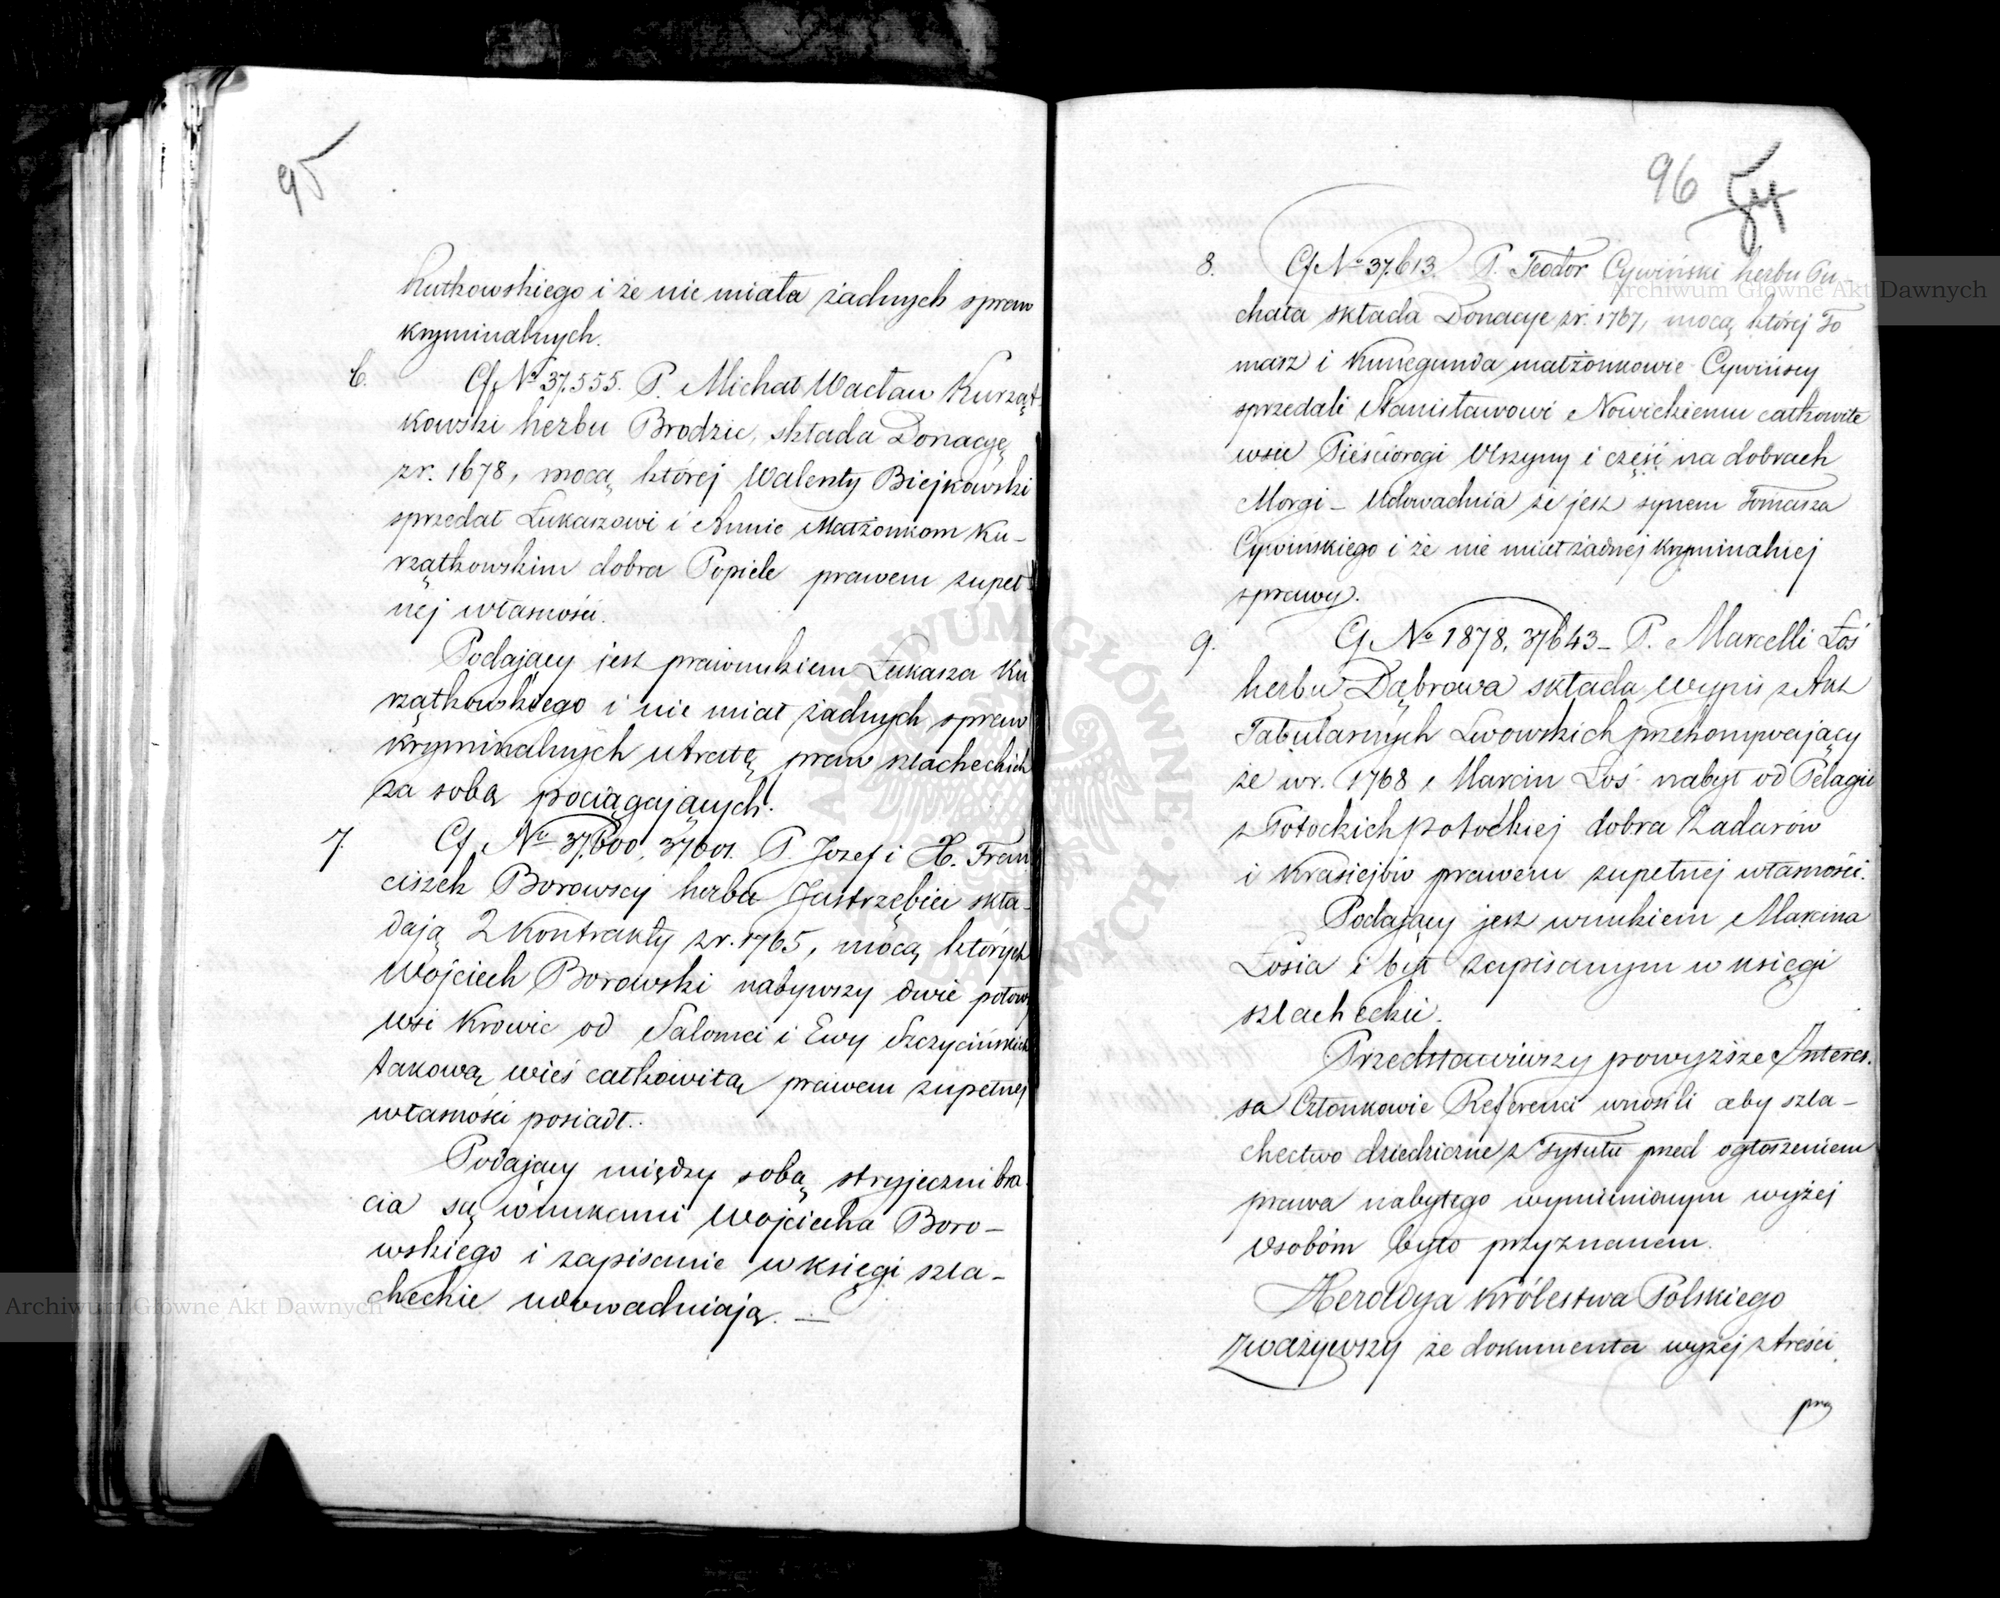 95
Rutkowskiego i że nie miała żadnych spraw
kryminalnych.
6. Cf. No 37.555. P. Michał Wacław Kurząt
kowski herbu Brodzic, składa Donacyę
z r. 1678, mocą której Walenty Biejkowski
sprzedał Łukaszowi i Annie Małżonkom Ku-
rzątkowskim dobra Popiele prawem zupeł-
nej własności.
Podający jest prawnukiem Łukasza Ku
rzątkowskiego i nie miał żadnych spraw
kryminalnych utratę praw szlacheckich
za sobą pociągających.
7. Cf. No 37.600, 37601. P. Jozef i X. Fran
ciszek Borowscy herbu Jastrzębiec skła-
dają 2 Kontrakty z r. 1765, mocą których
Wojciech Borowski nabywszy dwie połowy
wsi Krowic od Salomei i Ewy Szczycińskich
takową wieś całkowitą prawem zupełnej
własności posiadł.
Podający między sobą stryjeczni bra
cia są wnukami Wojciecha Boro-
wskiego i zapisanie w księgi szla-
checkie udowadniają. —
96
8. Cf No 37.613. P. Teodor Cywiński herbu Pu-
chała składa Donacye z r. 1767, mocą której To
masz i Kunegunda małżonkowie Cywińscy
sprzedali Stanisławowi Nowickiemu całkowite
wsie Pieścirogi Olszyny i część na dobrach
Morgi – Udowadnia że jest synem Tomasza
Cywinskiego i że nie miał żadnej kryminalnej
sprawy.
9. Cf No 1878, 37643 – P. Marcelli Łoś
herbu Dąbrowa składa Wypis z Akt
Tabularnych Lwowskich przekonywający
że w r. 1768 Marcin Łoś nabył od Pelagii
z Potockich Potockiej dobra Zadarów
i Krasiejów prawem zupełnej własności.
Podający jest wnukiem Marcina
Łosia i był zapisanym w księgi
szlacheckie.
Przedstawiwszy powyższe Interes-
sa Członkowie Referenci wnosili aby szla-
chectwo dziedziczne z tytułu przed ogłoszeniem
prawa nabytego wymienionym wyżej
osobóm było przyznanem.
Heroldya Królestwa Polskiego
Zważywszy że dokumenta wyżej z treści
prz
Archiwum Główne Akt Dawnych
Archiwum Główne Akt Dawnych
ARCHIWUM GŁÓWNE AKT DAWNYCH